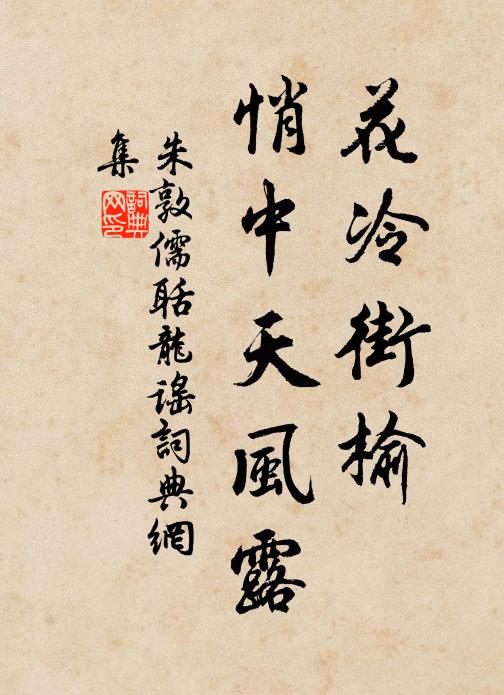 花冷街榆
悄中天風露
朱敦儒聒龍謠詞典網
集
詞典
网印